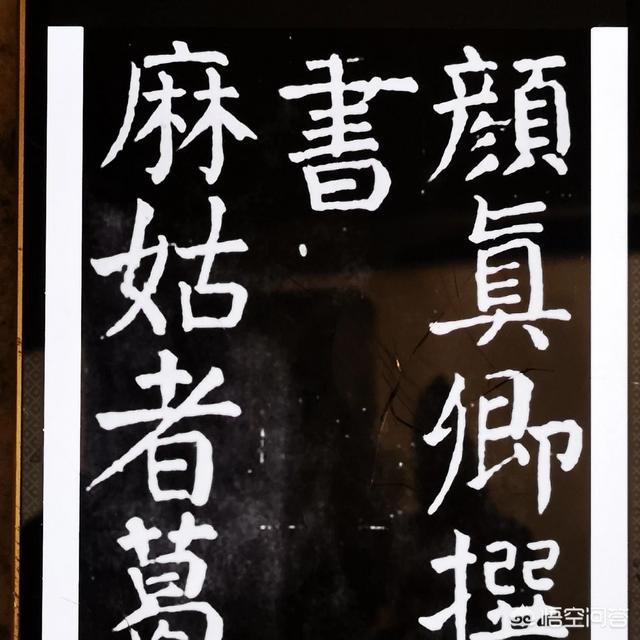 顔真卿撰
書
麻姑者葛
悟空问答